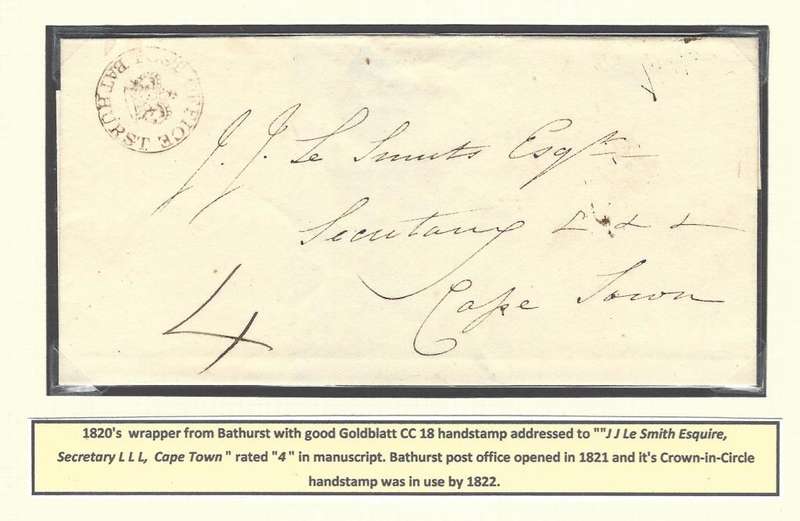 POST OFFICE BATHURST
J. J. Le Smuts Esqr.
Secretary L L L
Cape Town
4
1820's wrapper from Bathurst with good Goldblatt CC 18 handstamp addressed to ""J J Le Smith Esquire,
Secretary L L L, Cape Town " rated "4 " in manuscript. Bathurst post office opened in 1821 and it's Crown-in-Circle
handstamp was in use by 1822.